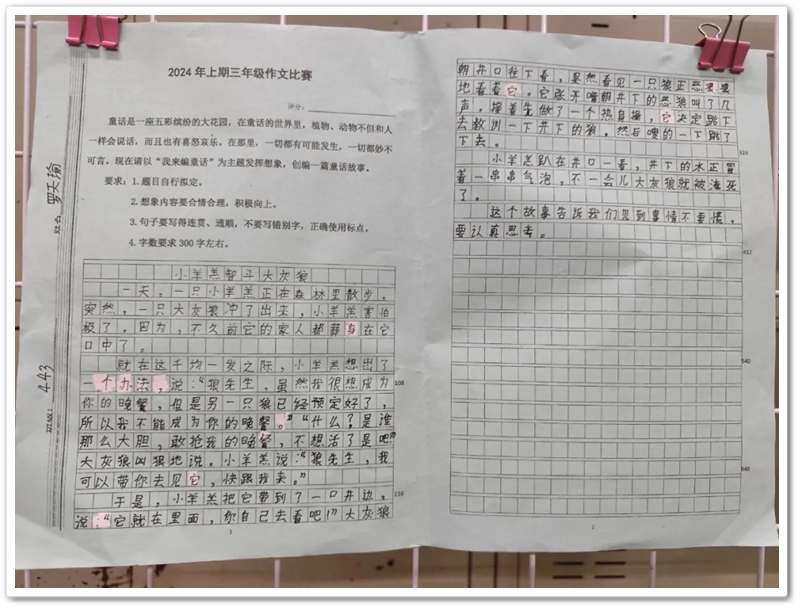 2024年上期三年级作文比赛
评分：
童话是一座五彩缤纷的大花园，在童话的世界里，植物、动物不但和人
一样会说话，而且也有喜怒哀乐，在那里，一切都有可能发生，一切都妙不
可言。现在请以“我来编童话”为主题发挥想象，创编一篇童话故事。
要求：1.题目自行拟定。
2.想象内容要合情合理，积极向上。
3.句子要写得连贯、通顺，不要写错别字，正确使用标点。
4.字数要求300字左右。
班级：443
小羊羔智斗大灰狼
一天，一只小羊羔正在森林里散步。
突然，一只大灰狼冲了出来，小羊羔害怕
极了，因为，不久前它的家人都葬身在它
口中了。
就在这千均一发之际，小羊羔想出了
一个办法，说：“狼先生，虽然我很想成为
108
你的晚餐，但是另一只狼已经预定好了，
所以我不能成为你的晚餐。”“什么？是谁
那么大胆，敢抢我的晚餐，不想活了是吧！”
大灰狼叫狠地说。小羊羔说：“狼先生，我
可以带你去见它，快跟我来。”
于是，小羊羔把它带到了一只井边，
216
说：“它就在里面，你自己去看吧！”大灰狼
1
朝井口往下看，果然看见一只狼正恶狠狠
地看着它。它张开嘴朝井下的恶狼叫了几
声，接着先做了一个热身操，它决定跳下
去教训一下井下的狼。然后嗖的一下跳了
下去。
324
小羊羔趴在井口一看，井下的水正冒
着一串串气泡，不一会儿大灰狼就被淹死
了。
这个故事告诉我们见到事情不要慌，
要认真思考。
432
540
648
2